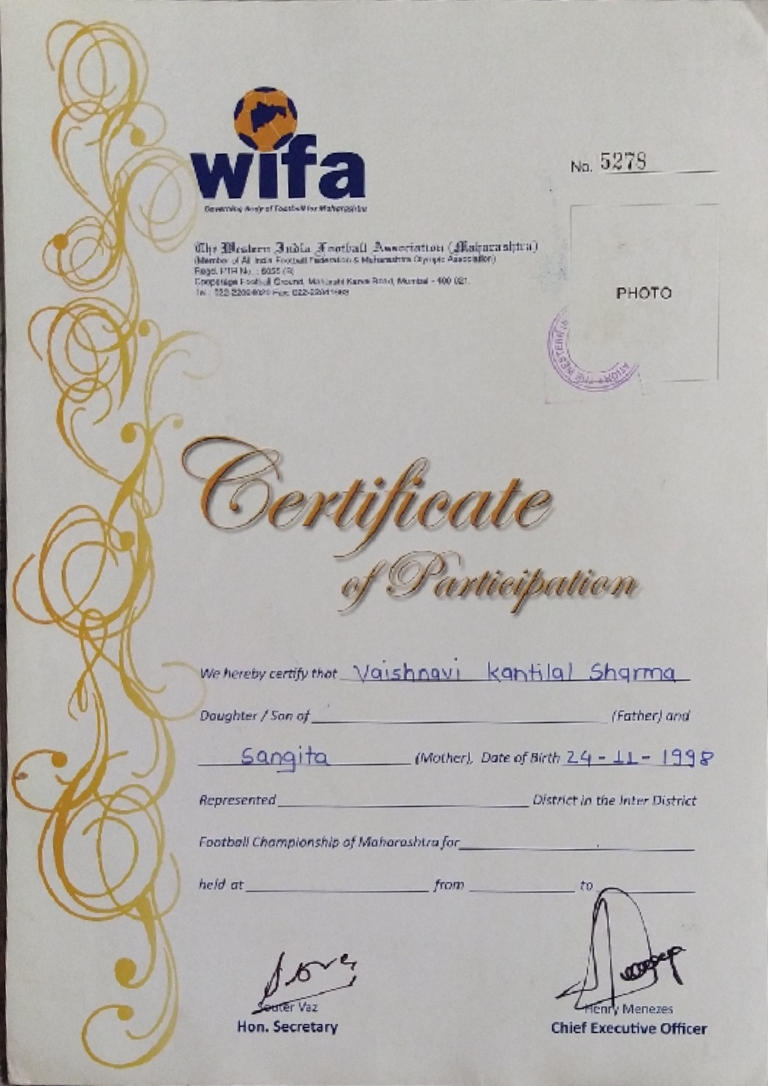 wifa
Governing Body of Football for Maharashtra
No. 5278
The Western India Football Association (Maharashtra)
(Member of All India Football Federation & Maharashtra Olympic Association)
Regd. PTR No. : 6055 (B)
Cooperage Football Ground, Maharshi Karve Road, Mumbai - 400 021.
PHOTO
THE WESTERN
Certificate
of Participation
We hereby certify that Vaishnavi kantilal Sharma
Daughter / Son of (Father) and
Sangita (Mother), Date of Birth 24-11-1998
Represented District in the Inter District
Football Championship of Maharashtra for
held at from to
Souter Vaz
Henry Menezes
Hon. Secretary
Chief Executive Officer